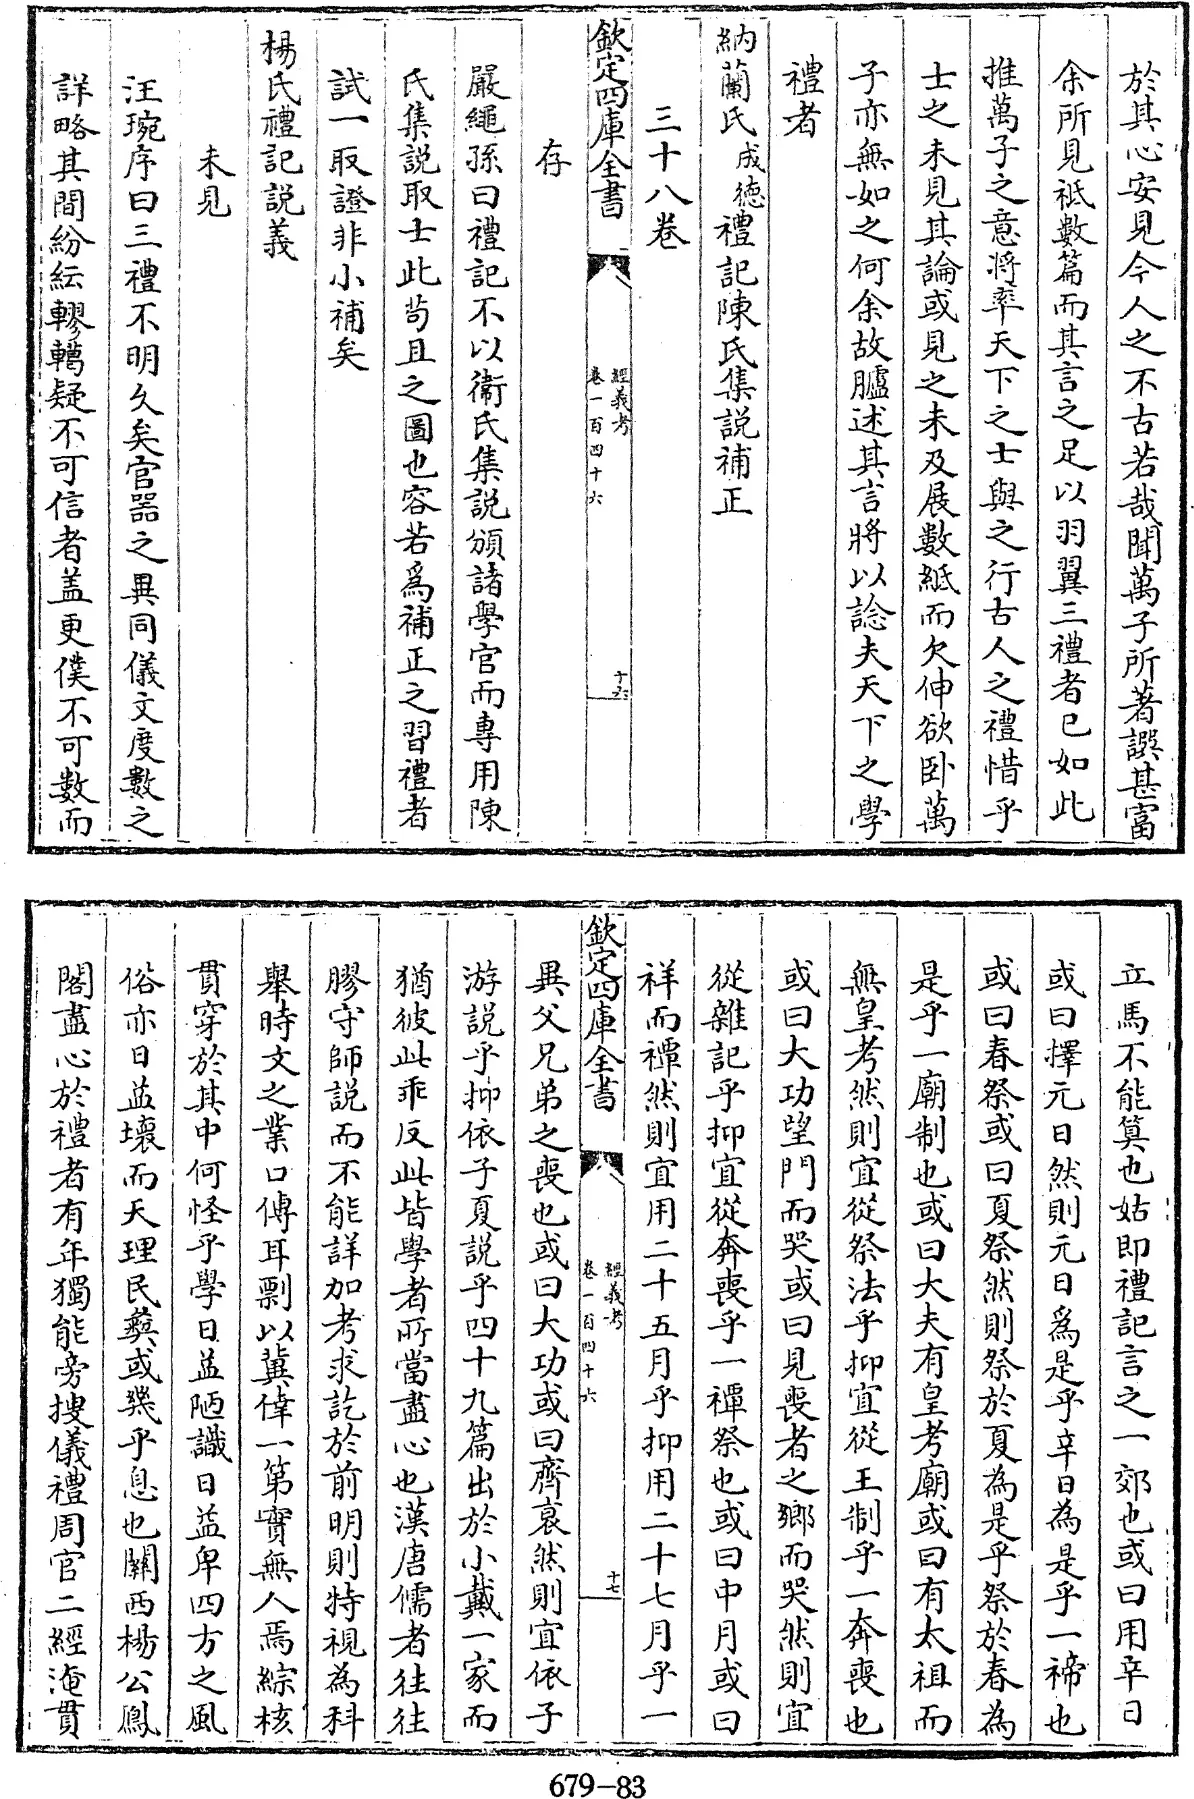 於其心安見今人之不古若哉聞萬子所著譔甚富
余所見祗數篇而其言之足以羽翼三禮者已如此
推萬子之意將率天下之士與之行古人之禮惜乎
士之未見其論或見之未及展數紙而欠伸欲卧萬
子亦無如之何余故臚述其言將以諗夫天下之學
禮者
納蘭氏成德禮記陳氏集説補正
三十八卷
欽定四庫全書
經義考
卷一百四十六
十六
存
嚴繩孫曰禮記不以衞氏集説頒諸學官而專用陳
氏集説取士此茍且之圖也容若爲補正之習禮者
試一取證非小補矣
楊氏禮記説義
未見
汪琬序曰三禮不明久矣官器之異同儀文度數之
詳略其間紛紜轇轕疑不可信者蓋更僕不可數而
立馬不能筭也姑即禮記言之一郊也或曰用辛日
或曰擇元日然則元日爲是乎辛日為是乎一禘也
或曰春祭或曰夏祭然則祭於夏為是乎祭於春為
是乎一廟制也或曰大夫有皇考廟或曰有太祖而
無皇考然則宜從祭法乎抑宜從王制乎一奔喪也
或曰大功望門而哭或曰見喪者之鄉而哭然則宜
從雜記乎抑宜從奔喪乎一禫祭也或曰中月或曰
祥而禫然則宜用二十五月乎抑用二十七月乎一
欽定四庫全書
經義考
卷一百四十六
十七
異父兄弟之喪也或曰大功或曰齊衰然則宜依子
游説乎抑依子夏説乎四十九篇出於小戴一家而
猶彼此乖反此皆學者所當盡心也漢唐儒者往往
膠守師説而不能詳加考求訖於前明則特視為科
舉時文之業口傳耳剽以冀倖一第實無人焉綜核
貫穿於其中何怪乎學日益陋識日益卑四方之風
俗亦日益壞而天理民彝或幾乎息也關西楊公鳳
閣盡心於禮者有年獨能旁搜儀禮周官二經淹貫
679-83